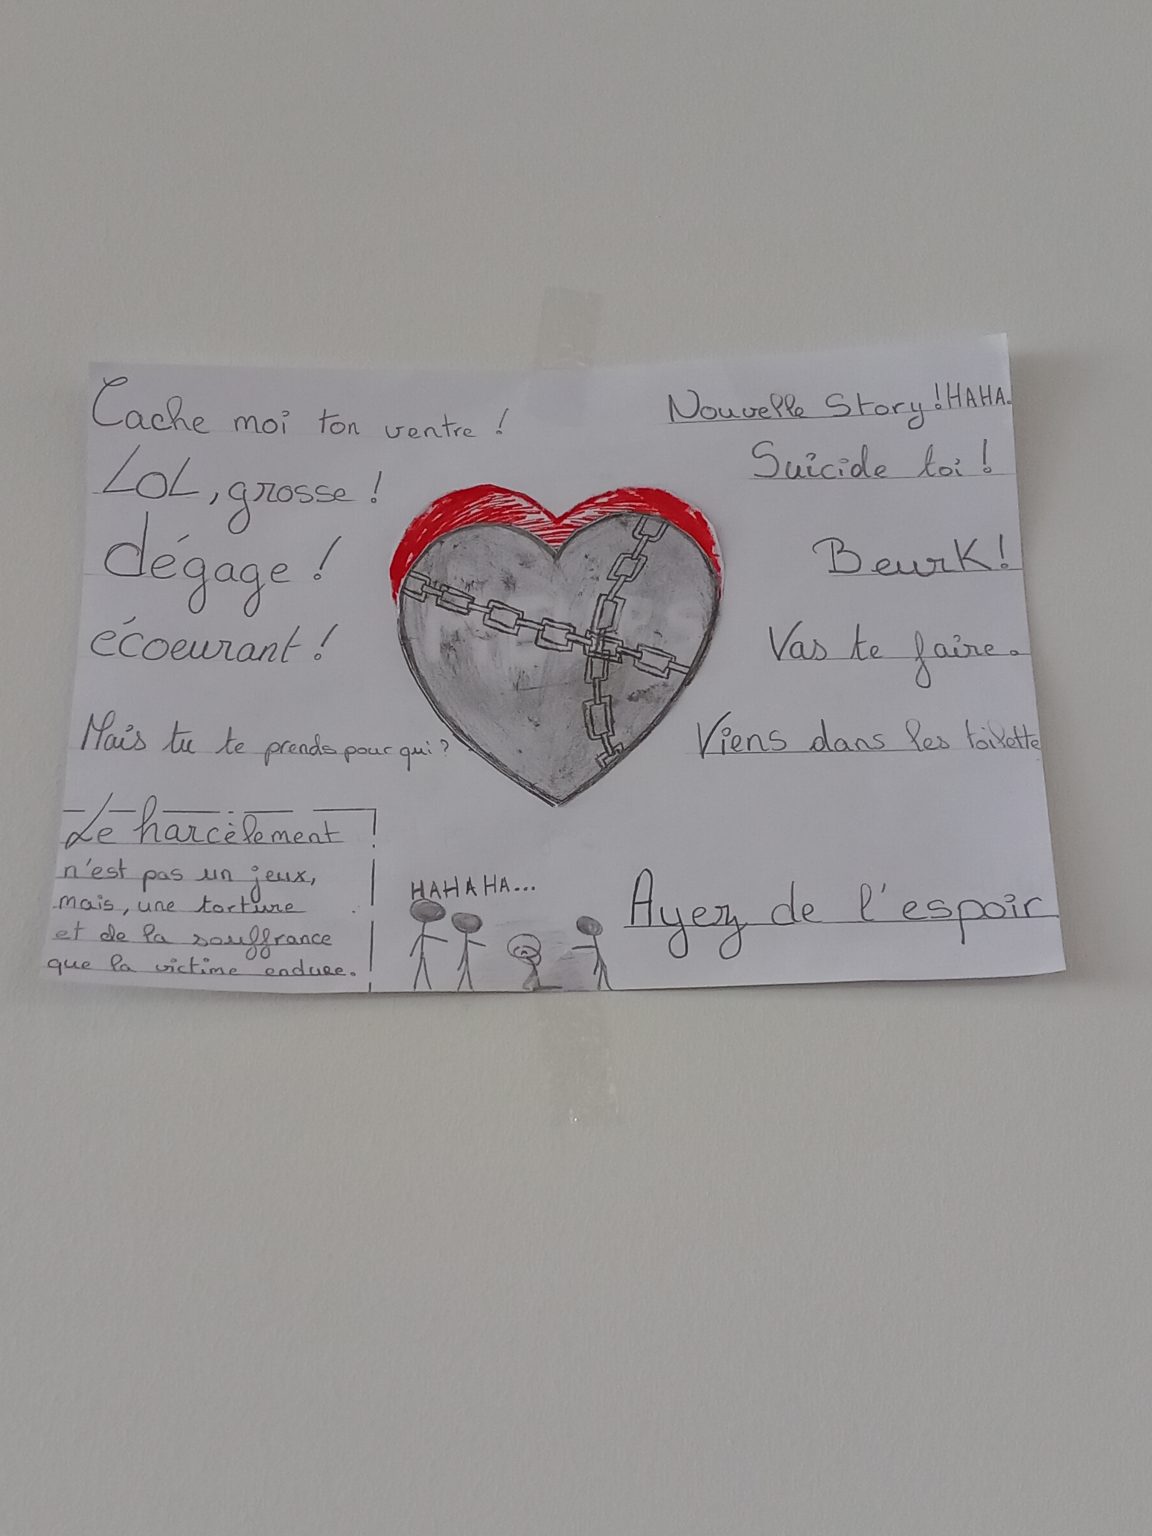 Cache moi ton ventre !
LOL, grosse !
dégage !
écoeurant !
Mais tu te prends pour qui ?
Le harcèlement
n'est pas un jeux,
mais, une torture
et de la souffrance
que la victime endure.
Nouvelle Story ! HAHA.
Suicide toi !
Beurk !
Vas te faire.
Viens dans les toilette
HAHAHA...
Ayez de l'espoir